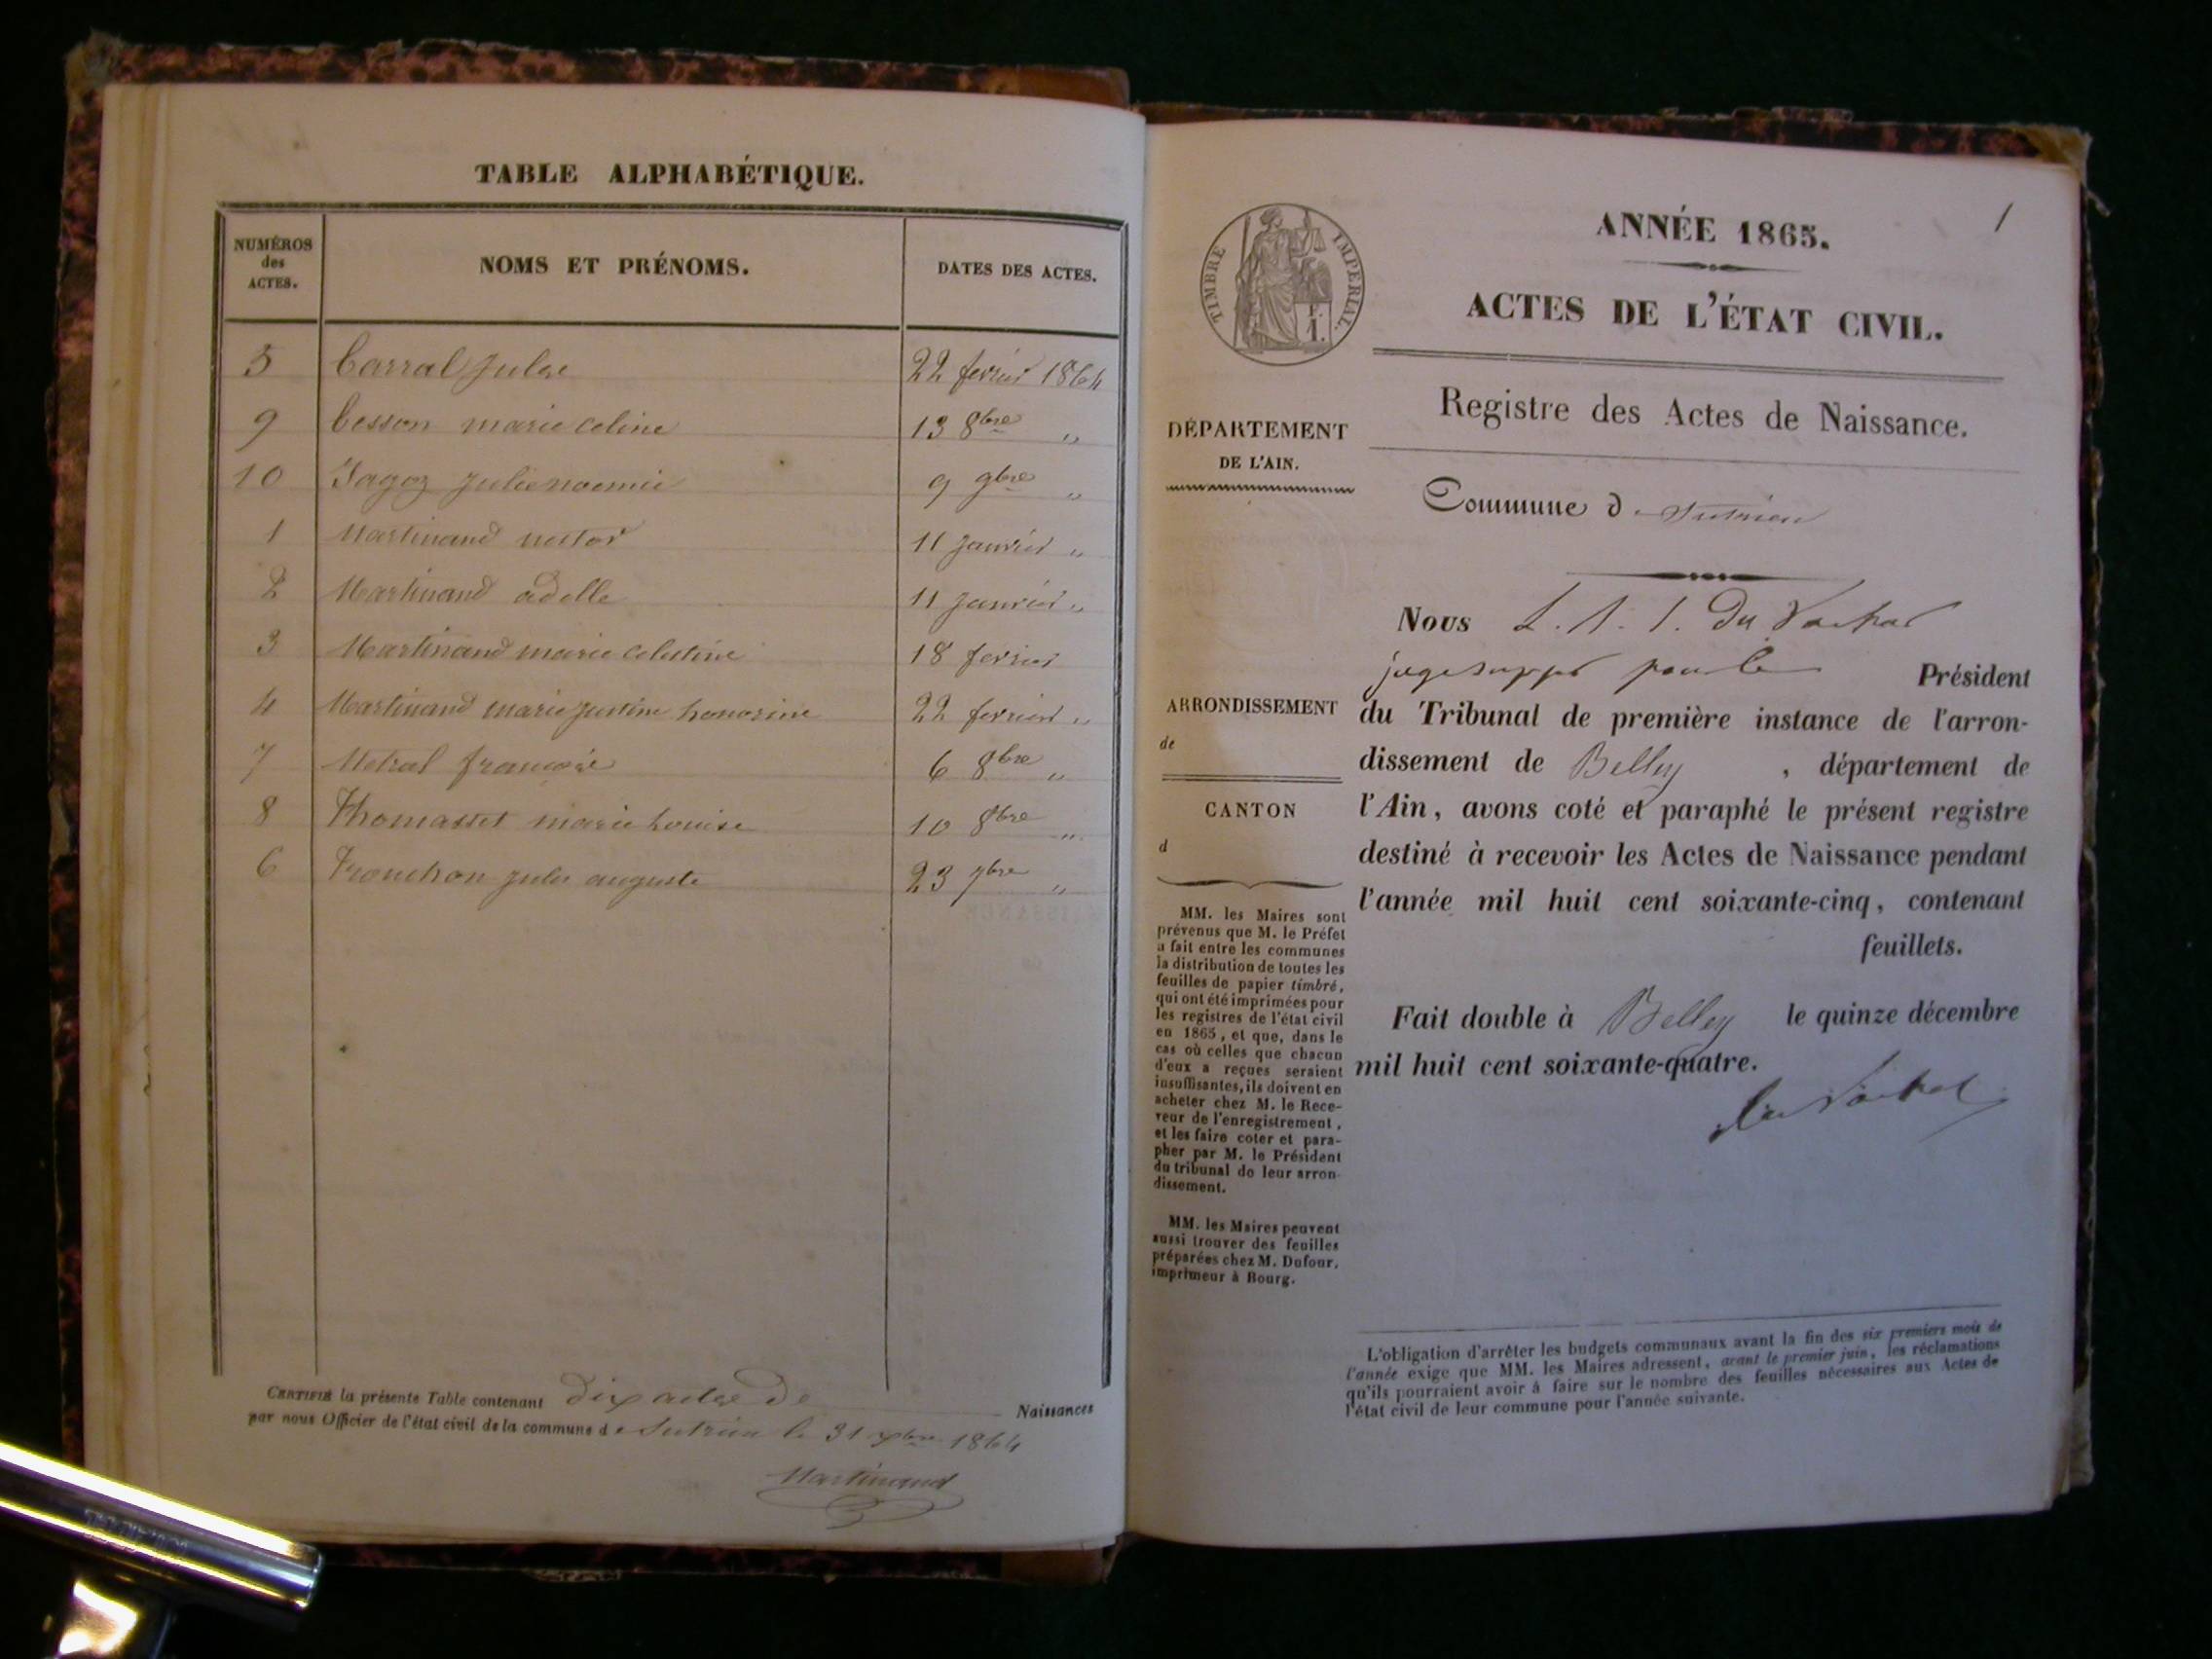 TABLE ALPHABÉTIQUE.
NUMÉROS
des
ACTES.
NOMS ET PRÉNOMS.
DATES DES ACTES.
5 Carral Julse 22 fevrier 1864
9 Cesson marie celine 13 8bre "
10 Jagoz Julie noemie 9 9bre "
1 Martinand nestor 11 Janvier "
2 Martinand adelle 11 Janvier "
3 Martinand marie celestine 18 fevrier
4 Martinand marie justine honorine 22 fevrier "
7 Metral françoise 6 8bre "
8 Thomasset marie Louise 10 8bre "
6 Tronchon jules auguste 23 7bre "
CERTIFIÉ la présente Table contenant dix actes de Naissances
par nous Officier de l'état civil de la commune de Sutrieu le 31 xbre 1864
Martinand
1
ANNÉE 1865.
TIMBRE IMPERIAL.
F.
1.
ACTES DE L'ÉTAT CIVIL.
Registre des Actes de Naissance.
DÉPARTEMENT
DE L'AIN.
Commune de Sutrieu
Nous L. A. J. Du
juge suppt pour le Président
ARRONDISSEMENT
de
CANTON
d
du Tribunal de première instance de l'arron-
dissement de Belley , département de
l'Ain, avons coté et paraphé le présent registre
destiné à recevoir les Actes de Naissance pendant
l'année mil huit cent soixante-cinq, contenant
feuillets.
Fait double à Belley le quinze décembre
mil huit cent soixante-quatre.
MM. les Maires sont
prévenus que M. le Préfet
a fait entre les communes
la distribution de toutes les
feuilles de papier timbré,
qui ont été imprimées pour
les registres de l'état civil
en 1865, et que, dans le
cas où celles que chacun
d'eux a reçues seraient
insuffisantes, ils doivent en
acheter chez M. le Rece-
veur de l'enregistrement,
et les faire coter et para-
pher par M. le Président
du tribunal de leur arron-
dissement.
MM. les Maires peuvent
aussi trouver des feuilles
préparées chez M. Dufour,
imprimeur à Bourg.
L'obligation d'arrêter les budgets communaux avant la fin des six premiers mois de
l'année exige que MM. les Maires adressent, avant le premier juin, les réclamations
qu'ils pourraient avoir à faire sur le nombre des feuilles nécessaires aux Actes de
l'état civil de leur commune pour l'année suivante.